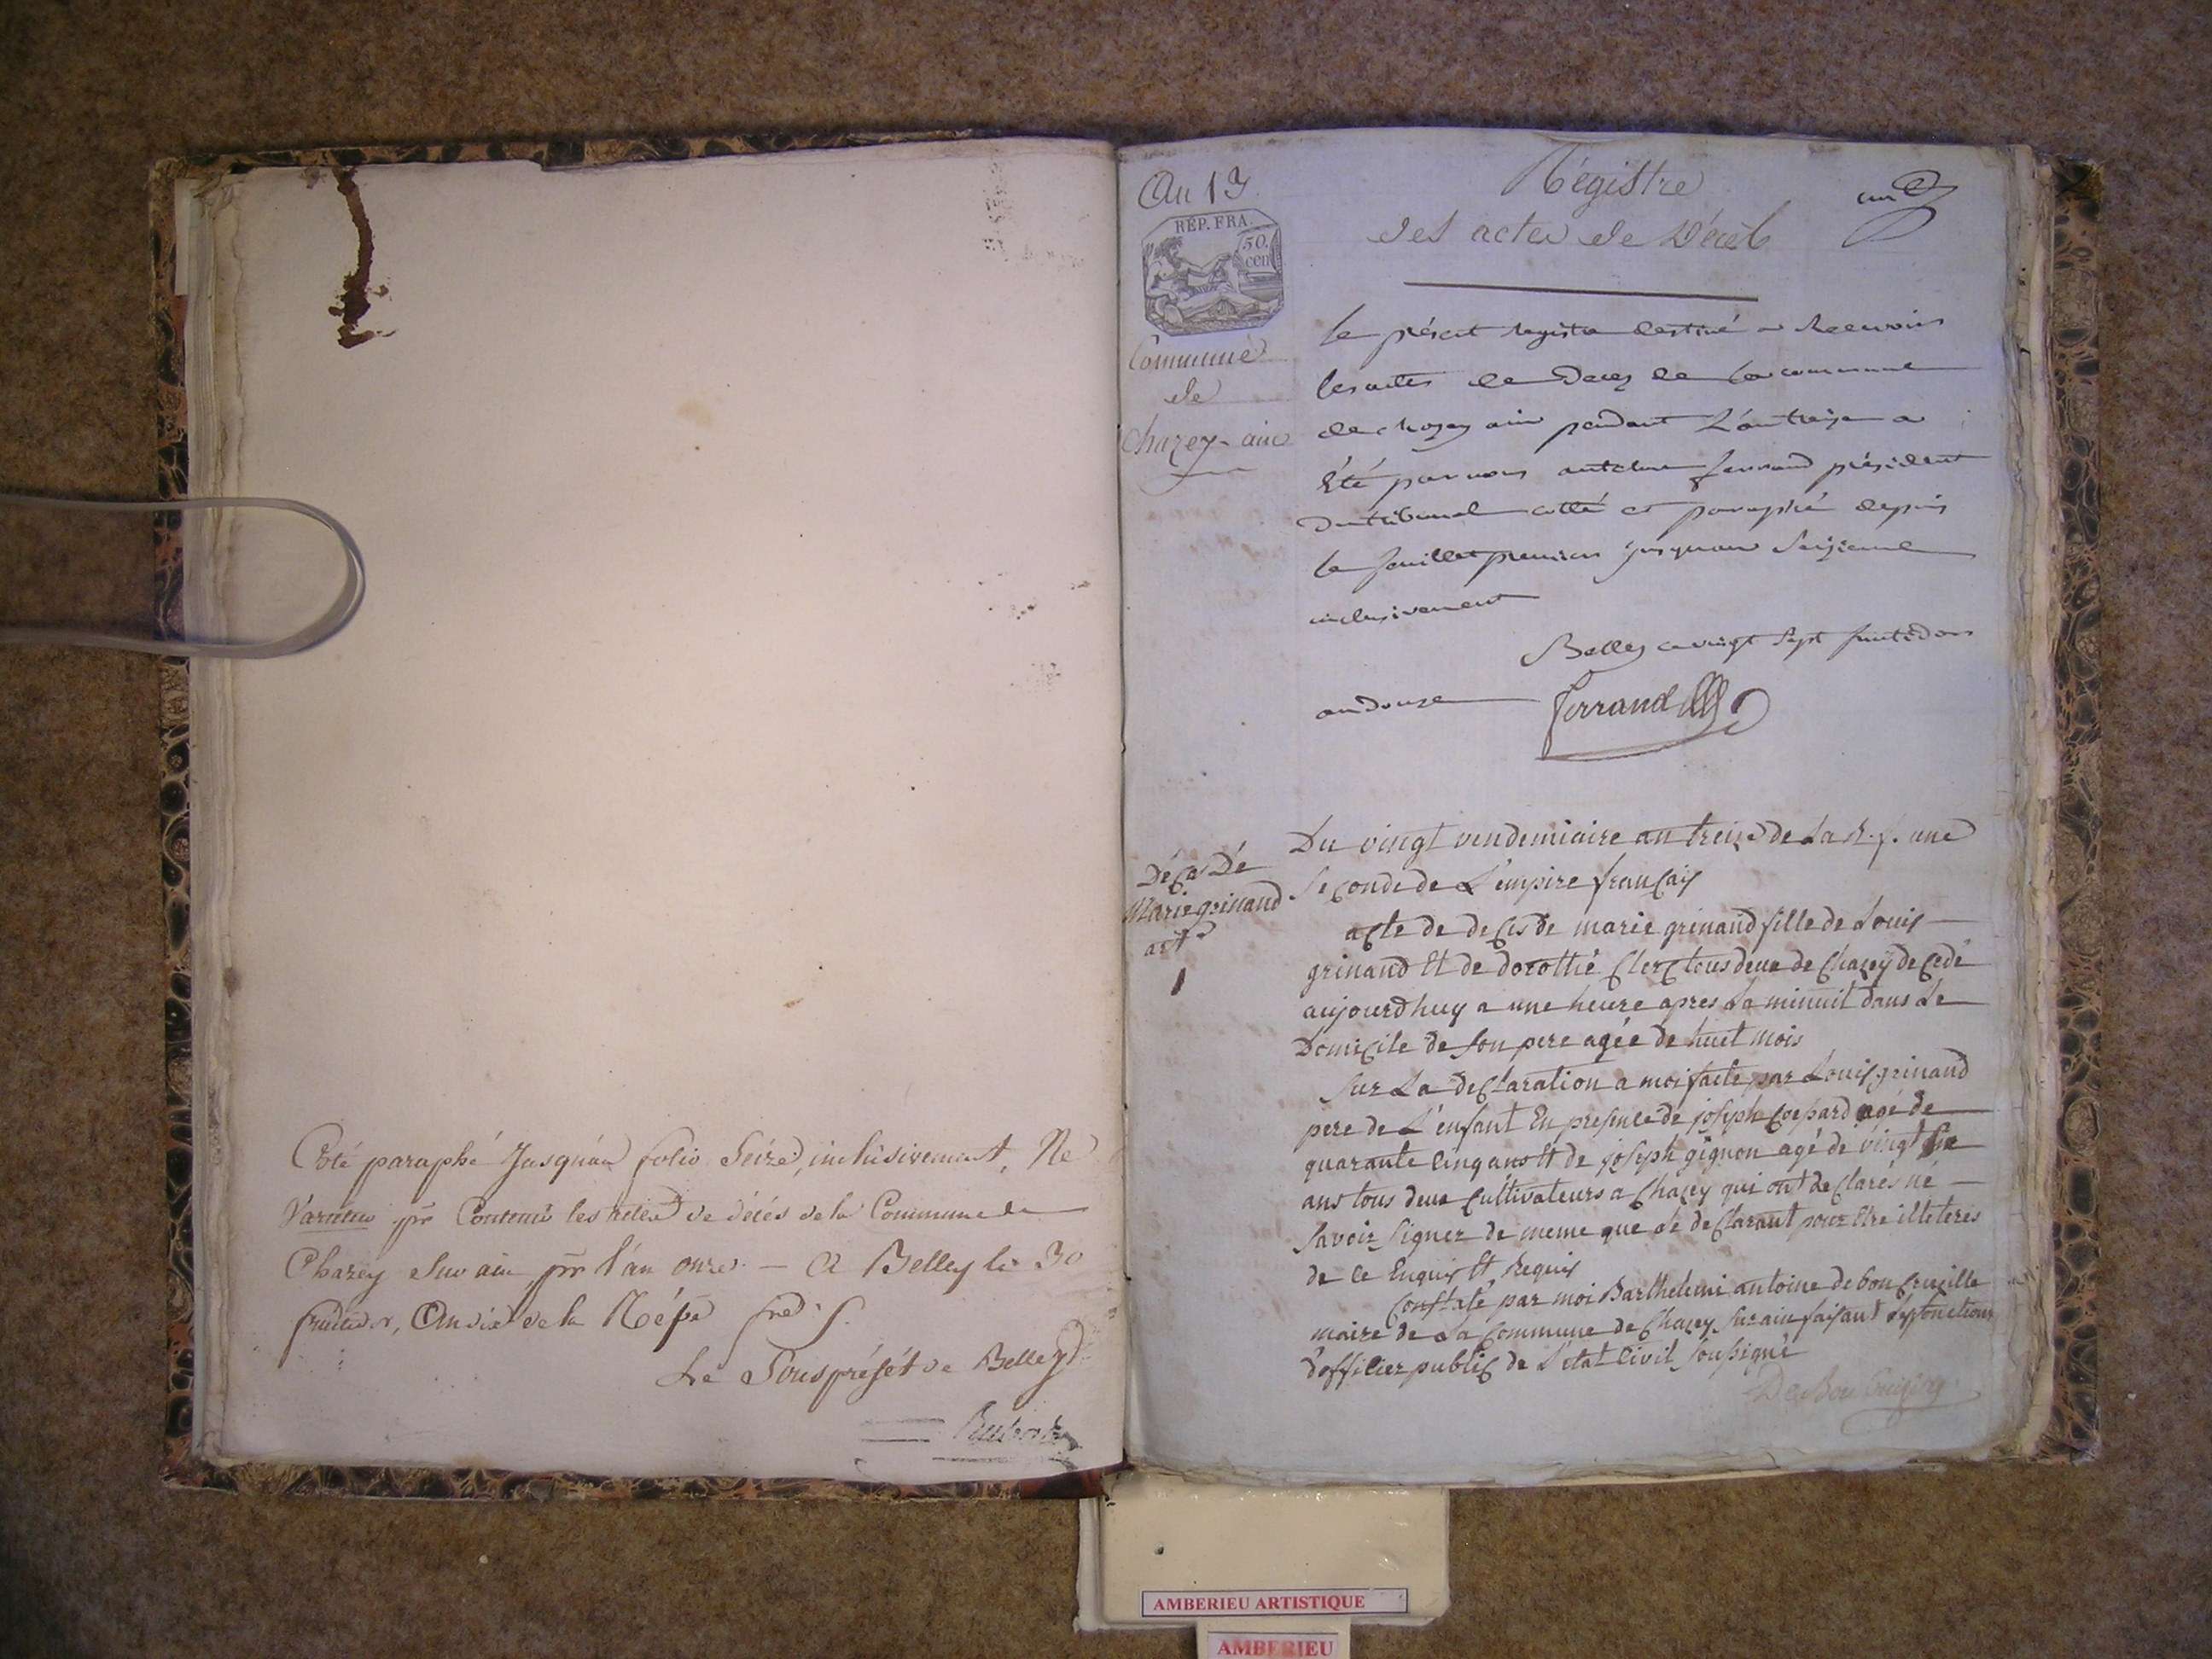 Coté paraphé Jusqu'au folio Seize, inclusivement, Ne
Varietur pr Contenir les actes de décés de la Commune de
Chazey Sur ain pr l'an onze. — A Belley le 30
fructidor, An dix de la Répe frse.
Le Souspréfét de Belley
An 13
RÉP. FRA.
50.
cen
Commune
de
Chazey-ain
Régistre
des actes de Décés
un
le présent registre destiné a Recevoir
les actes de Deces de la commune
de chazey ain pendant L'an treize a
Eté par nous antelme ferrand président
du tribunal cotté et paraphé depuis
le feuillet premier jusquau Seizieme
inclusivement
Belley ce vingt Sept fructidor
an douze
ferrand
Décés Dé
Marie grinand
1
Du vingt vendemiaire an treize de La R. f. une
Seconde de L'empire français
acte de deces de marie grinand fille de Louis
grinand Et de dorothé Clerc tous deux de Chazey decedé
aujourdhuy a une heure apres La minuit dans Le
Domicile de Son pere agée de huit mois
Sur La declaration a moi faite par Louis grinand
pere de L'enfant En presence de joseph agé de
quarante Cinq ans Et de joseph gignon agé de vingt Six
ans tous deux Cultivateurs a Chazey qui ont declarés né
Savoir Signer de meme que Le declarant pour Etre illeteres
de Ce Enquis Et Requis
Constaté par moi Barthelemi antoine
maire de La Commune de Chazey Sur ain faisant Les fonctions
d'officier public de L'etat Civil Soussigné
AMBERIEU ARTISTIQUE
AMBERIEU